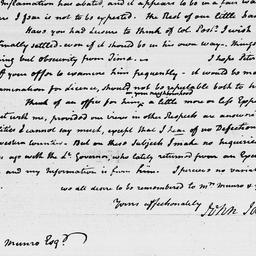 Inflammation has abated, and it appears to be in a fair wa
rs I fear is not to be expected. The Rest of our little ha
Have you had Leisure to think of Col. Post's I wish
finally settled. even if it should be in his own way. Things
ing but obscurity from Time. — I hope Peter
f your offer to examine him frequently. — it would be ma
amination for Licence, should not be repeatable both to h
in your neighbourhood
Think of an office for him, a little more or less Exp
et with me, provided our views in other Respects are answer
itics I cannot say much, except that I hear of no Defection
western counties. But on these Subjects I make no Inquiries
s ago with the Lt. Governor, who lately returned from an Exc
and my Information is from him. I perceive no varia
we all desire to be remembered to Mrs. Munro &
Yours affectionately
John Ja
Munro Esqr.